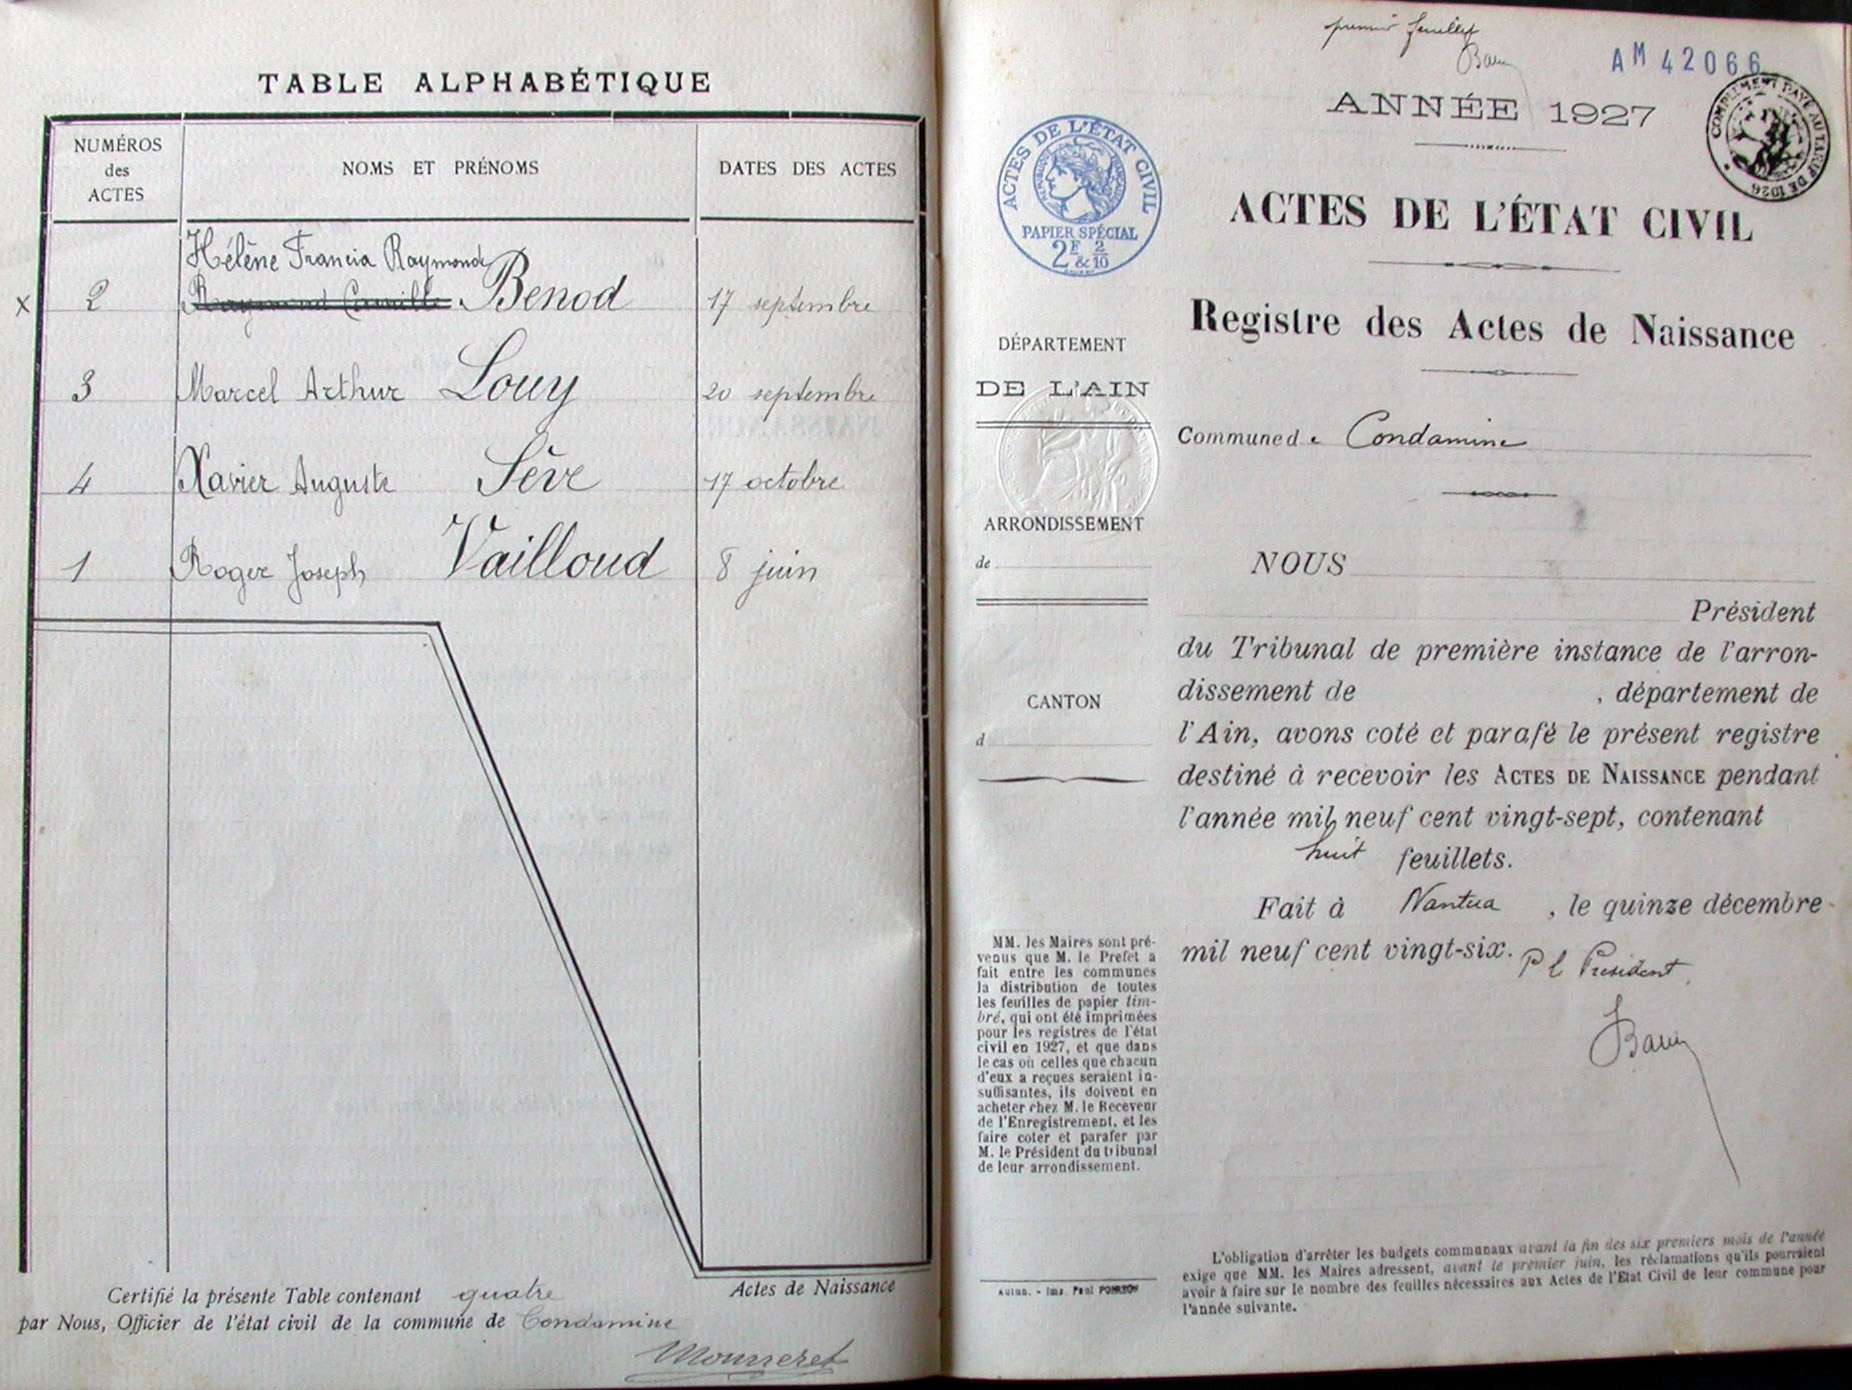 TABLE ALPHABÉTIQUE
NUMÉROS des ACTES
NOMS ET PRÉNOMS
DATES DES ACTES
Hélène Francia Raymonde
x 2 Raymond Camille Benod 17 septembre
3 Marcel Arthur Louy 20 septembre
4 Xavier Auguste Sève 17 octobre
1 Roger Joseph Vailloud 8 juin
Certifié la présente Table contenant quatre Actes de Naissance
par Nous, Officier de l'état civil de la commune de Condamine
Mourreret
premier feuillet
AM 42066
ANNÉE 1927
COMPLÉMENT PAYÉ AU TARIF DE 1926
ACTES DE L'ÉTAT CIVIL
PAPIER SPÉCIAL
2F & 2/10
ACTES DE L'ÉTAT CIVIL
Registre des Actes de Naissance
DÉPARTEMENT
DE L'AIN
Commune de Condamine
ARRONDISSEMENT
de
CANTON
d
NOUS
Président
du Tribunal de première instance de l'arron-
dissement de , département de
l'Ain, avons coté et parafé le présent registre
destiné à recevoir les ACTES DE NAISSANCE pendant
l'année mil neuf cent vingt-sept, contenant
huit feuillets.
Fait à Nantua, le quinze décembre
mil neuf cent vingt-six.
P le President
MM. les Maires sont pré-
venus que M. le Prefet a
fait entre les communes
la distribution de toutes
les feuilles de papier tim-
bré, qui ont été imprimées
pour les registres de l'état
civil en 1927, et que dans
le cas où celles que chacun
d'eux a reçues seraient in-
suffisantes, ils doivent en
acheter chez M. le Receveur
de l'Enregistrement, et les
faire coter et parafer par
M. le Président du tribunal
de leur arrondissement.
L'obligation d'arrêter les budgets communaux avant la fin des six premiers mois de l'année
exige que MM. les Maires adressent, avant le premier juin, les réclamations qu'ils pourraient
avoir à faire sur le nombre des feuilles nécessaires aux Actes de l'Etat Civil de leur commune pour
l'année suivante.